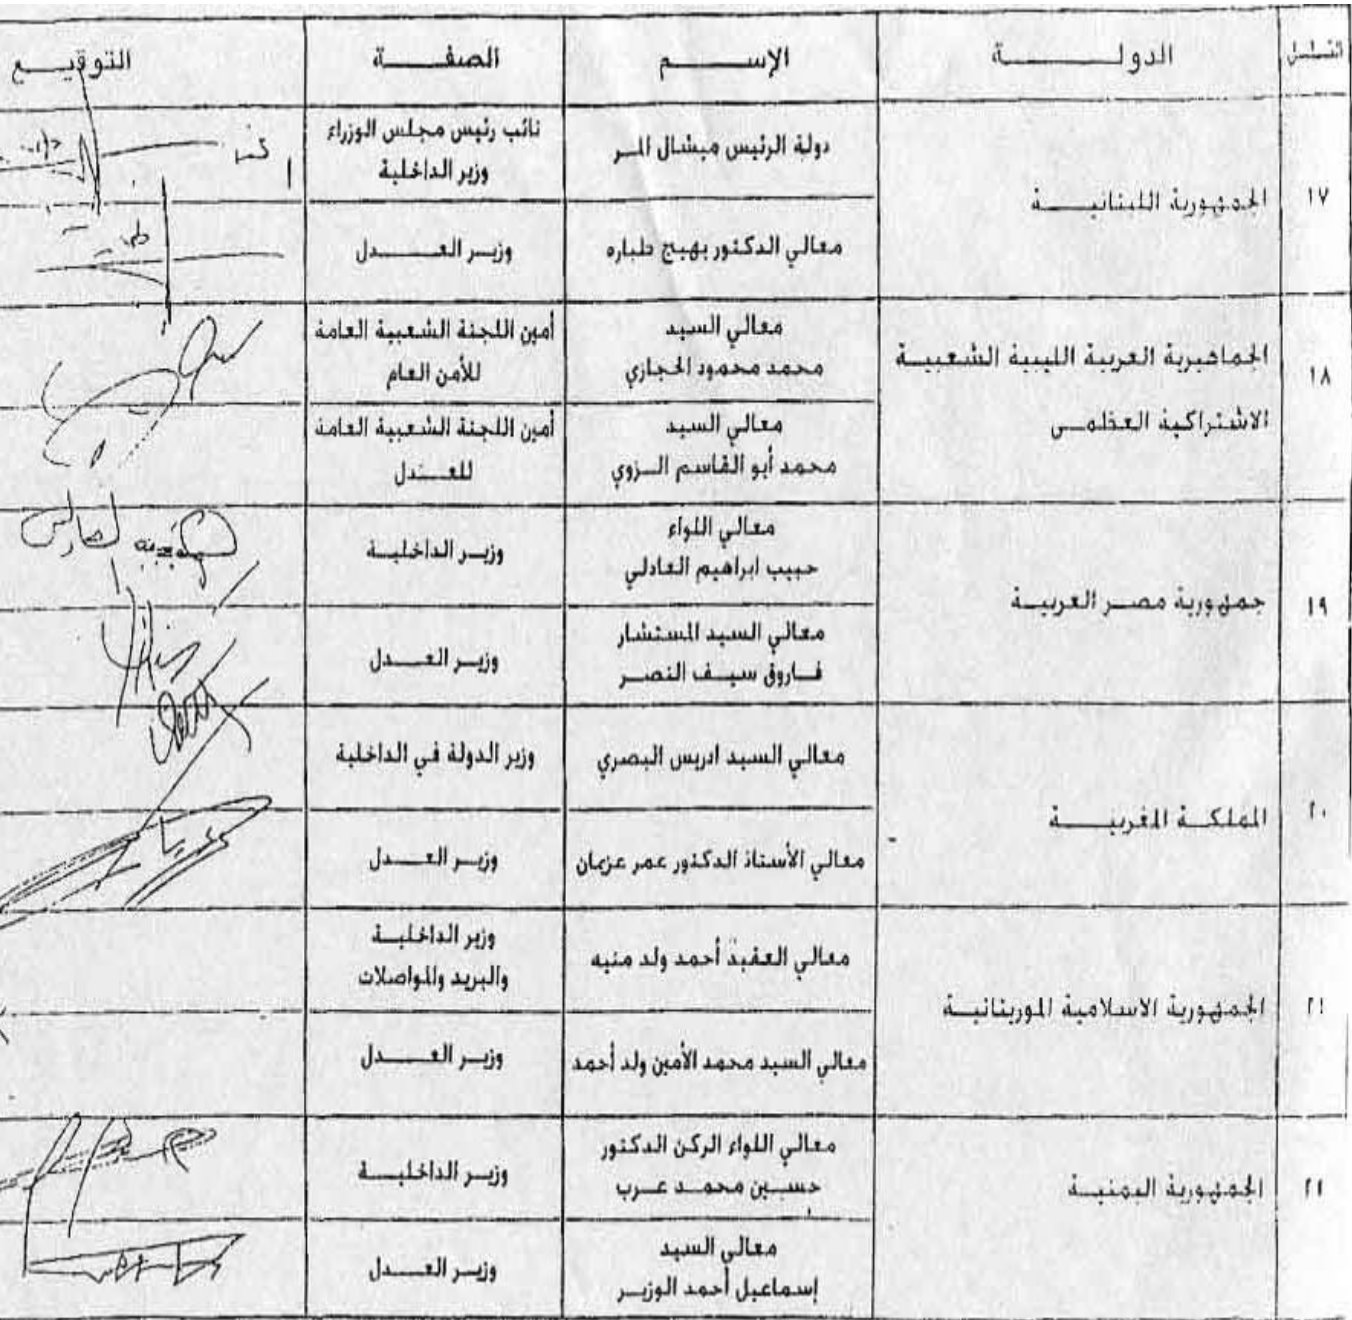 التسلسل الدولة الإسم الصفة التوقيع
١٧ الجمهورية اللبنانية
دولة الرئيس ميشال المر
نائب رئيس مجلس الوزراء
وزير الداخلية
معالي الدكتور بهيج طباره
وزير العدل
١٨ الجماهيرية العربية الليبية الشعبية
الاشتراكية العظمى
معالي السيد
محمد محمود الحجازي
أمين اللجنة الشعبية العامة
للأمن العام
معالي السيد
محمد أبو القاسم الزوي
أمين اللجنة الشعبية العامة
للعدل
١٩ جمهورية مصر العربية
معالي اللواء
حبيب ابراهيم العادلي
وزير الداخلية
معالي السيد المستشار
فاروق سيف النصر
وزير العدل
٢٠ المملكة المغربية
معالي السيد ادريس البصري
وزير الدولة في الداخلية
معالي الأستاذ الدكتور عمر عزيمان
وزير العدل
٢١ الجمهورية الاسلامية الموريتانية
معالي العقيد أحمد ولد منيه
وزير الداخلية
والبريد والمواصلات
معالي السيد محمد الأمين ولد أحمد
وزير العدل
٢٢ الجمهورية اليمنية
معالي اللواء الركن الدكتور
حسين محمد عرب
وزير الداخلية
معالي السيد
إسماعيل أحمد الوزير
وزير العدل